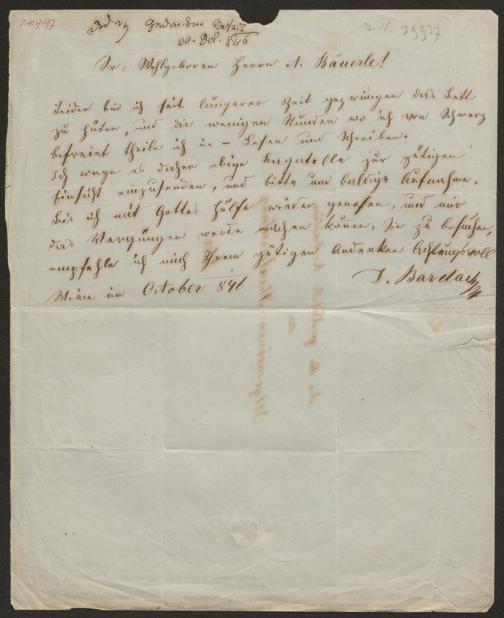 I.N. 9197
I.N. 39937
30. Oct. 846
Sr. Wohlgeboren Herrn A. Bäuerle!
Leider bin ich seit längerer Zeit gezwungen das Bett
zu hüten, und die wenigen Stunden wo ich von Schmerz
befreiet theile ich in – Lesen und Schreiben.
Ich wage es daher obige Bagatelle zur gütigen
Einsicht einzusenden, und bitte um baldige Aufnahme.
Bis ich mit Gottes Hülfe wieder genesen, und mir
das Vergnügen werde machen können, Sie zu besuchen,
empfehle ich mich Ihrem gütigen Andenken Achtungsvoll
Wien im October 846
D. Bardach